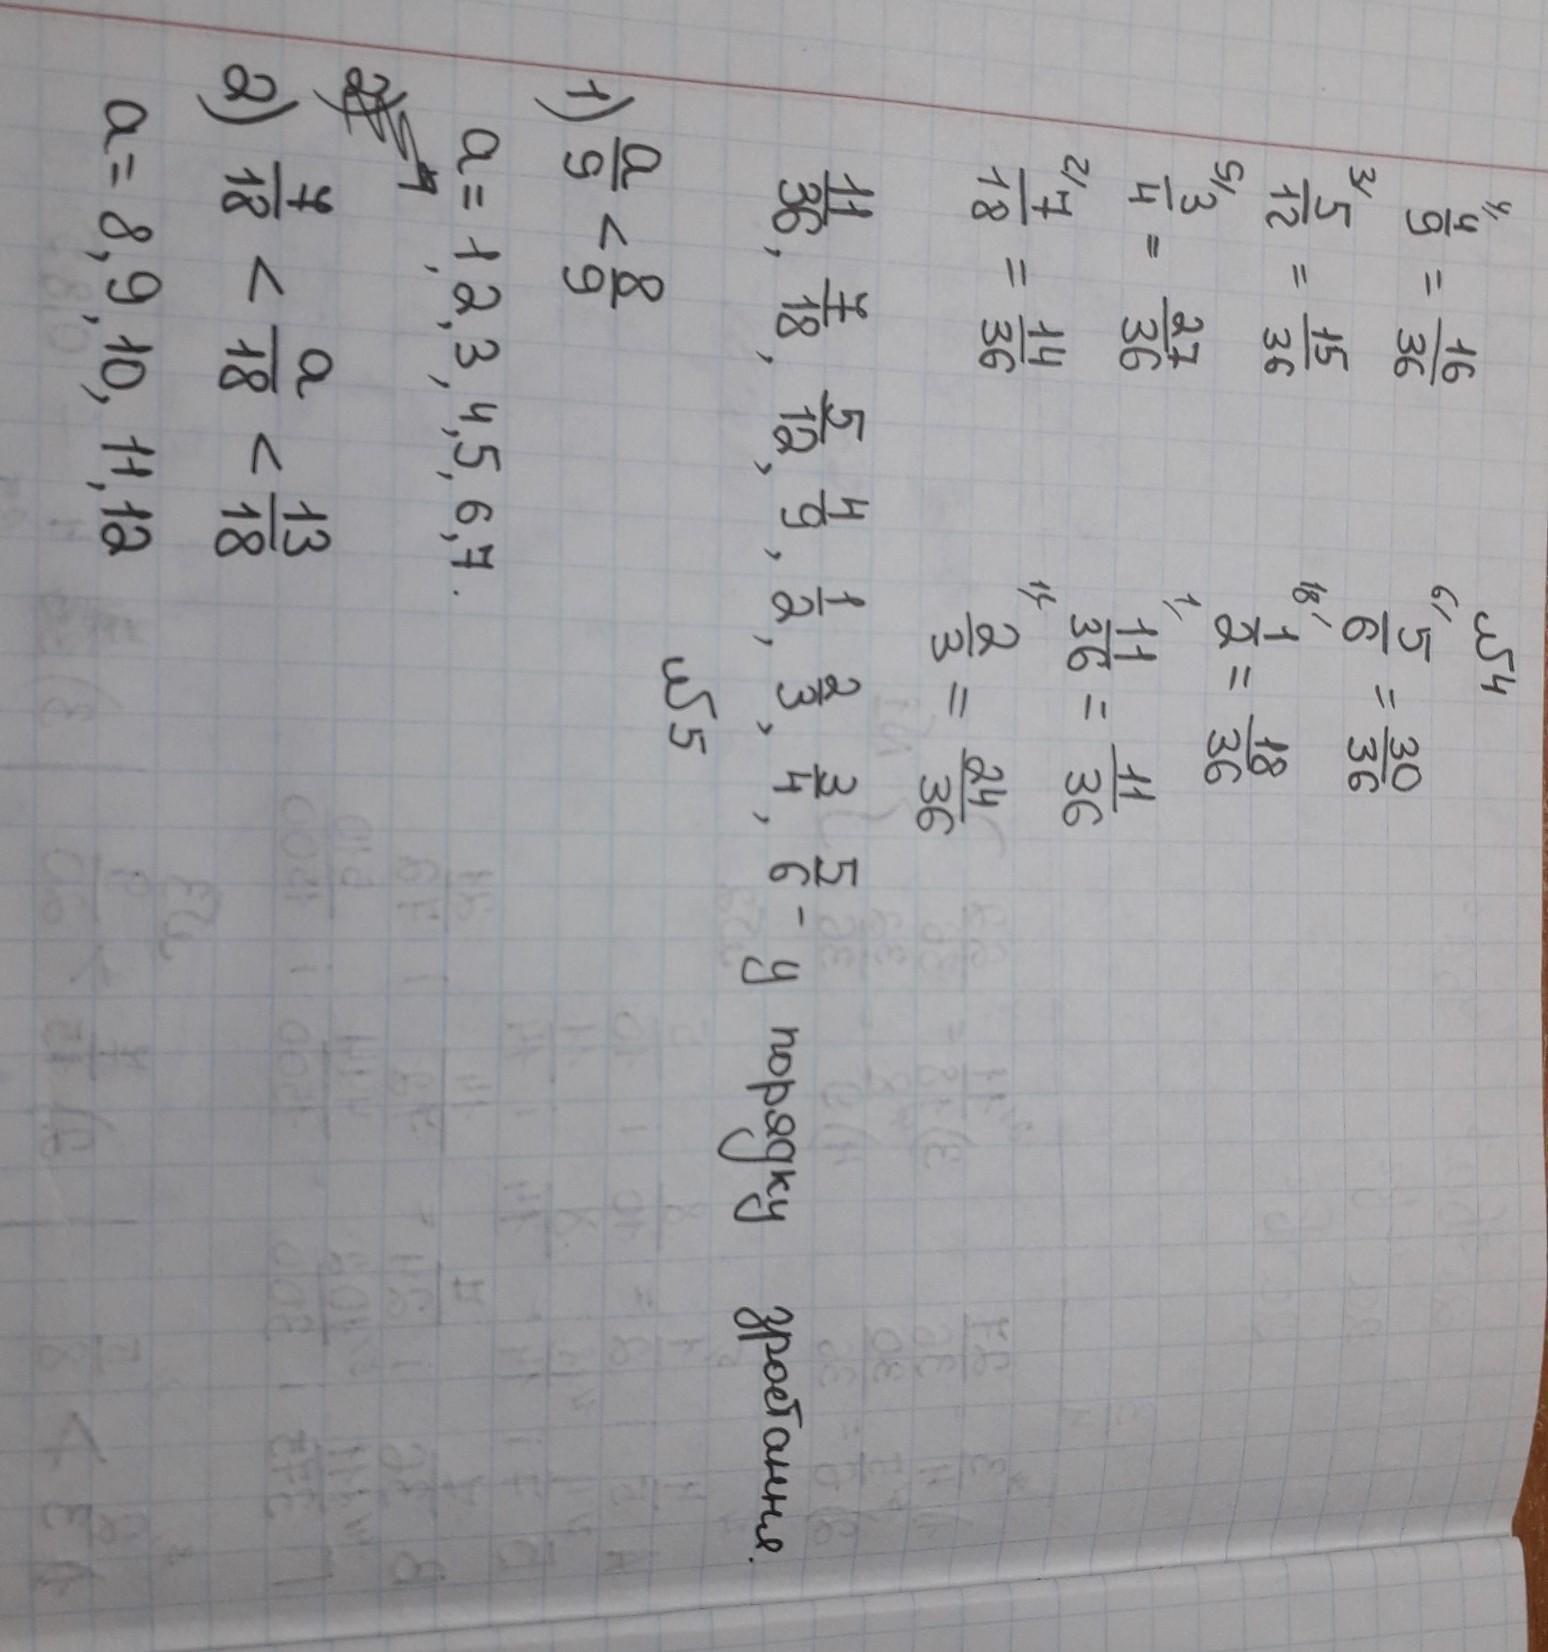 №4
4/ 4/9 = 16/36    6/ 5/6 = 30/36
3/ 5/12 = 15/36    18/ 1/2 = 18/36
9/ 3/4 = 27/36    1/ 11/36 = 11/36
2/ 7/18 = 14/36    2/3 = 24/36
11/36, 7/18, 5/12, 4/9, 1/2, 2/3, 3/4, 5/6 - у порядку зростання.
№5
1) a/9 < 8/9
a = 1, 2, 3, 4, 5, 6, 7.
2) 7/18 < a/18 < 13/18
a = 8, 9, 10, 11, 12